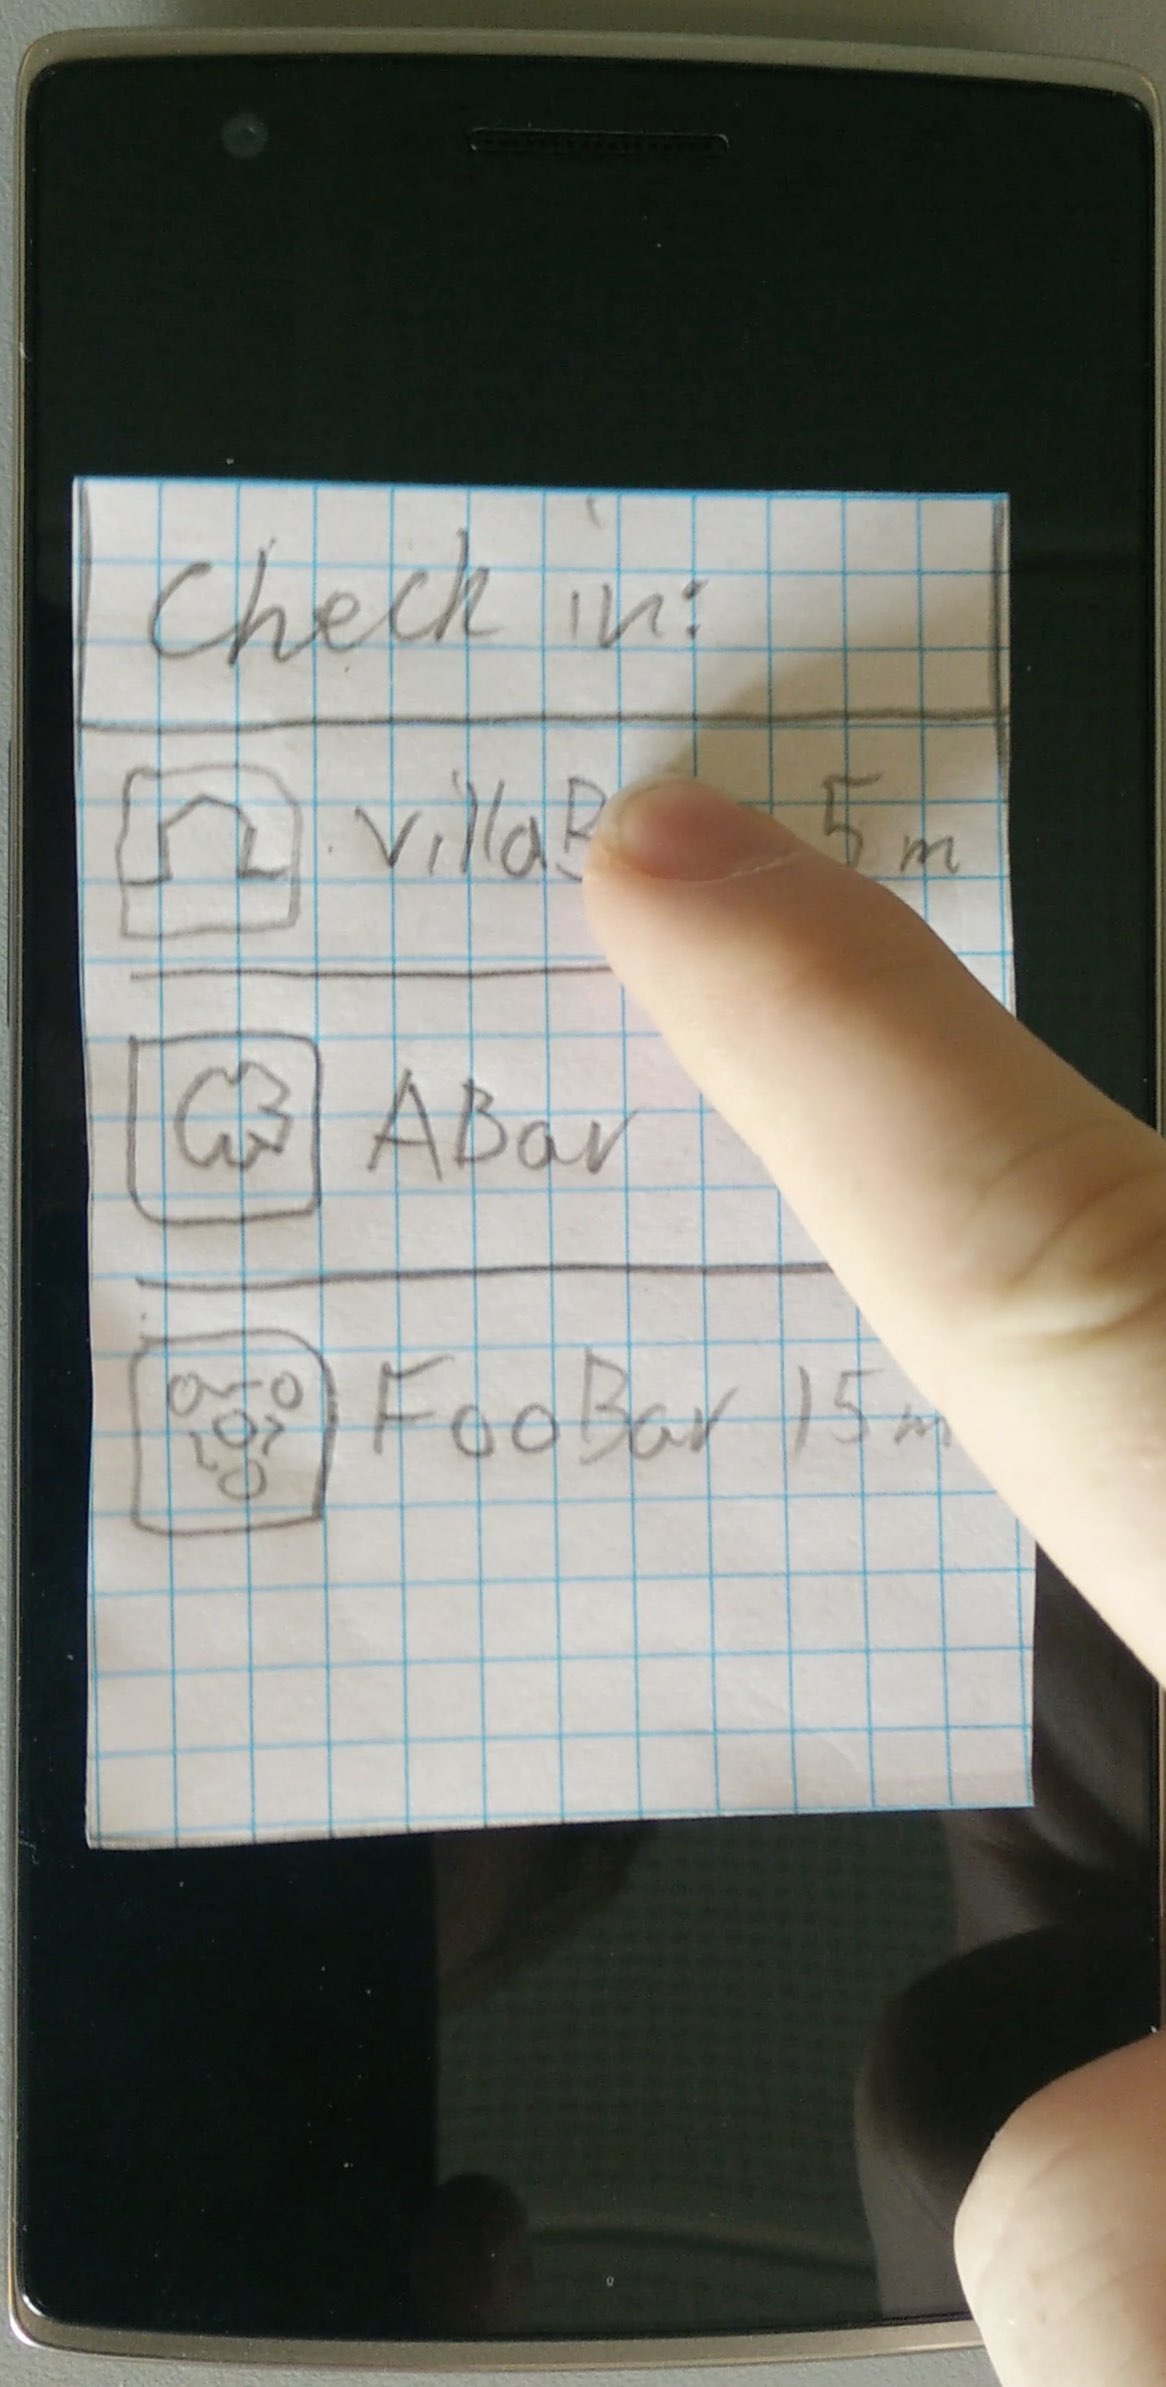 Check in:
VillaB 5m
ABar
FooBar 15m